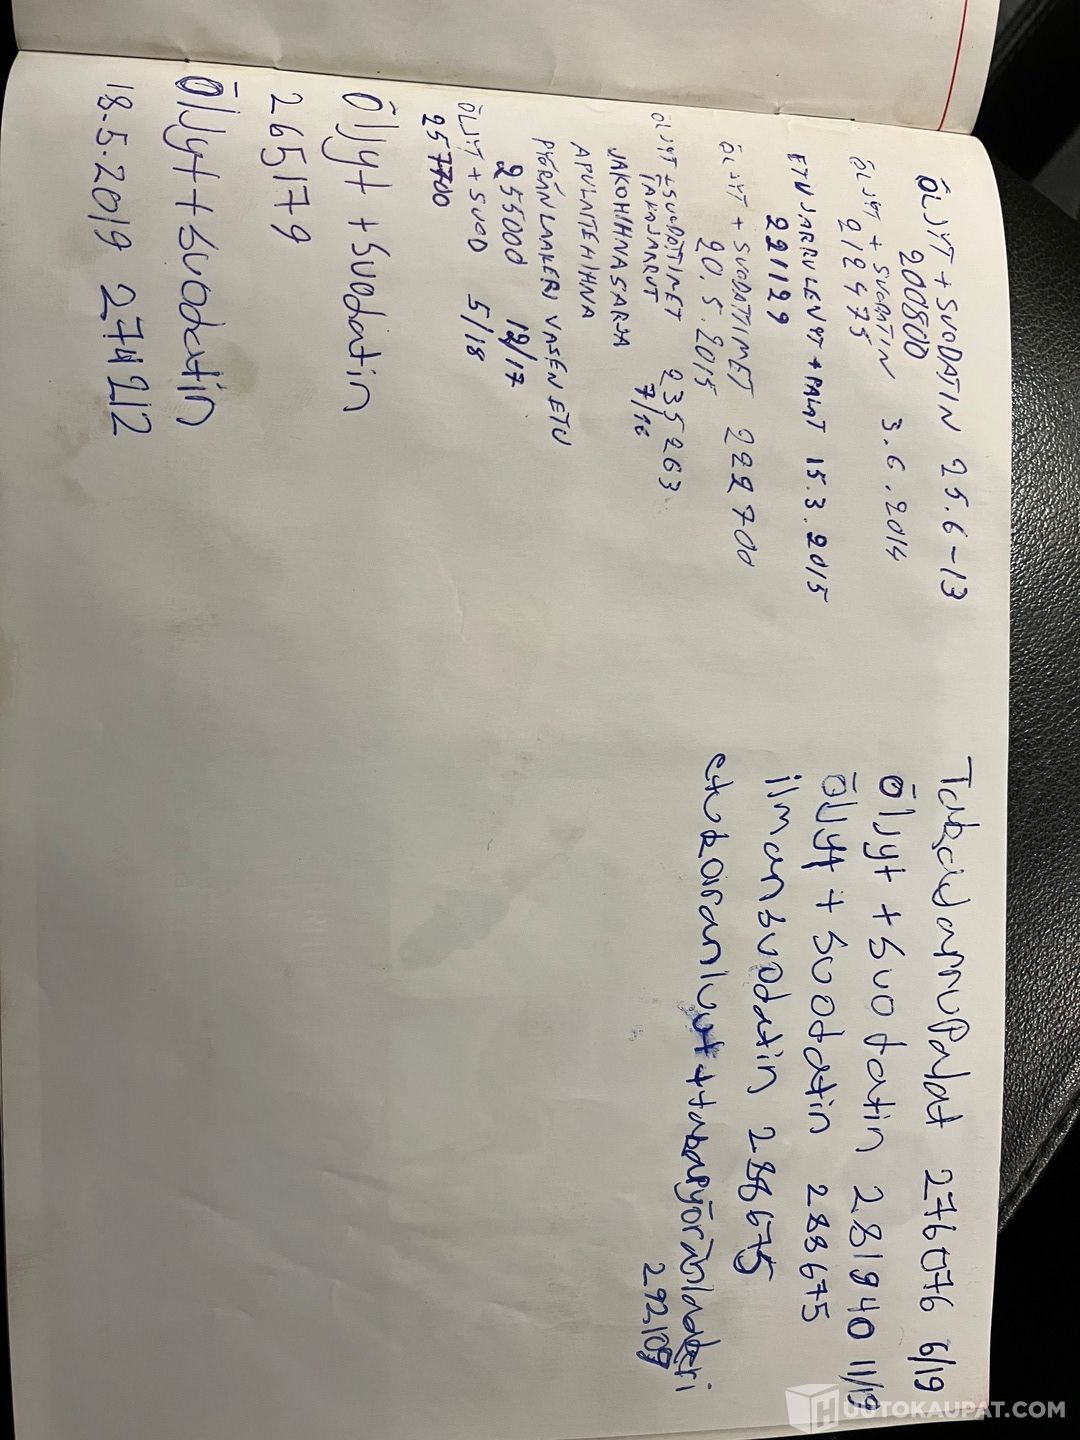 ÖLJYT + SUODATIN 25.6-13
200800
ÖLJYT + SUODATIN 3.6.2014
212475
ETUJARRULEVYT + PALAT 15.3.2015
221129
ÖLJYT + SUODATTIMET 222700
20.5.2015
ÖLJYT + SUODATIMET 235263
TAKAJARRUT 7/16
JAKOHIHNASARJA
APULAITEHIHNA
PYÖRÄNLAAKERI VASEN ETU
255000 12/17
ÖLJYT + SUOD 5/18
257700
Öljyt + suodatin
265179
Öljyt + suodatin
18.5.2019 274212
TakaJarruPalat 276076 6/19
Öljyt + suodatin 281940 11/19
Öljyt + suodatin 288675
ilmansuodatin 288675
etukoiranluut + takapyöränlaakeri
292,109
HUUTOKAUPAT.COM